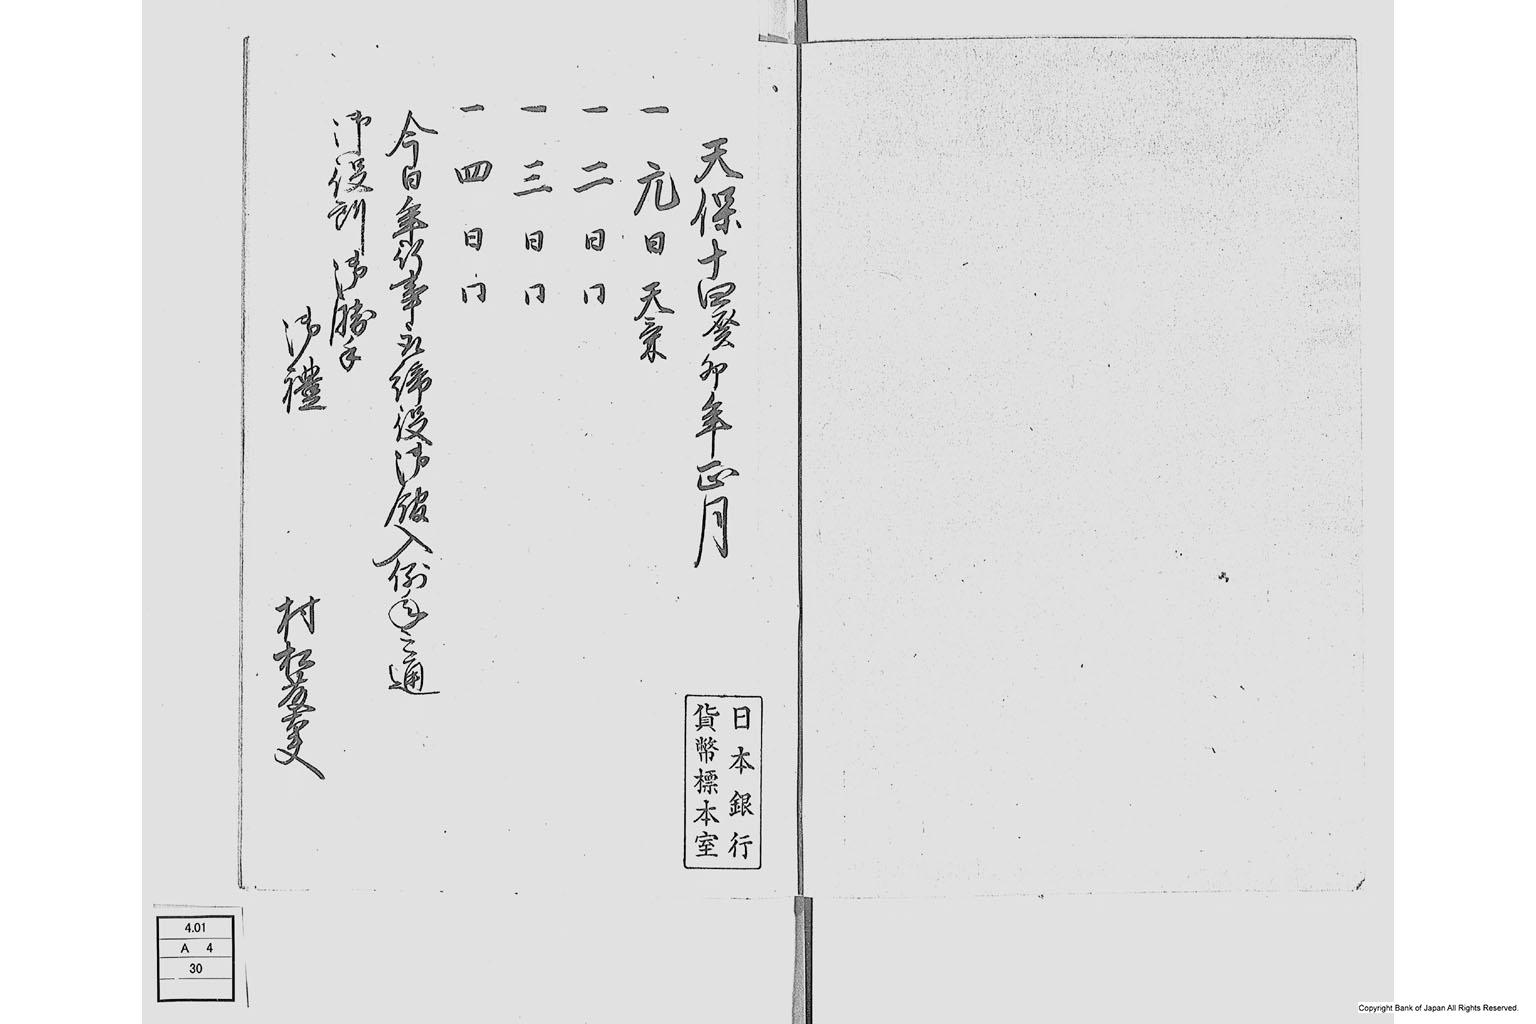 天保十四癸卯年正月
一 元日 天氣
一 二日 同
一 三日 同
一 四日 同
今日年行事取締役御館入例年之通
御役所御勝手
御禮
村松
日本銀行
貨幣標本室
4.01
A 4
30
Copyright Bank of Japan All Rights Reserved.